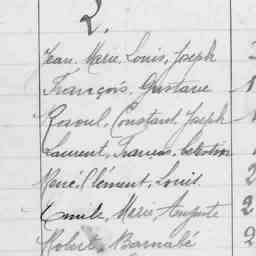 2.
Jean. Marie. Louis, Joseph 2
François, Gustave 1
Raoul, Constant, Joseph 1
Laurent, François, 1
René, Clément, Louis. 2
Emile, Marie Auguste 2
Robert, Barnabé 2